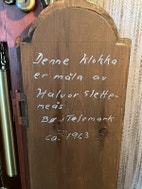 Denne klokka
er måla av
Halvor Slette-
meås
Bø, Telemark
ca. 1963